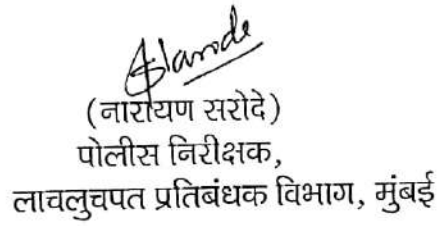 (नारायण सरोदे)
पोलीस निरीक्षक,
लाचलुचपत प्रतिबंधक विभाग, मुंबई